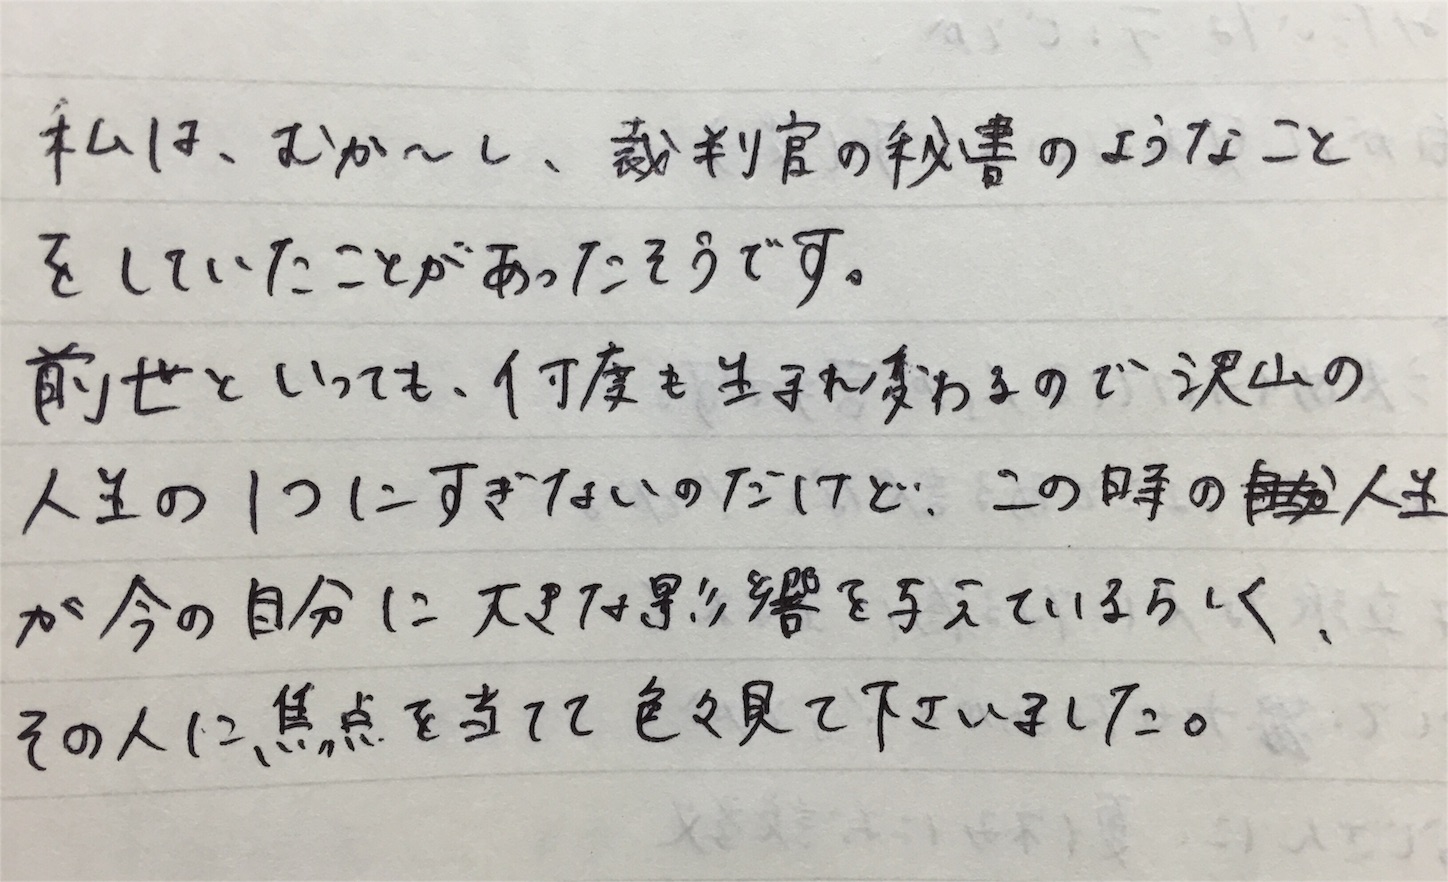 私は、むか〜し、裁判官の秘書のようなこと
をしていたことがあったそうです。
前世といっても、何度も生まれ変わるので沢山の
人生の1つにすぎないのだけど、この時の人生
が今の自分に大きな影響を与えているらしく、
その人に、焦点を当てて色々見て下さいました。